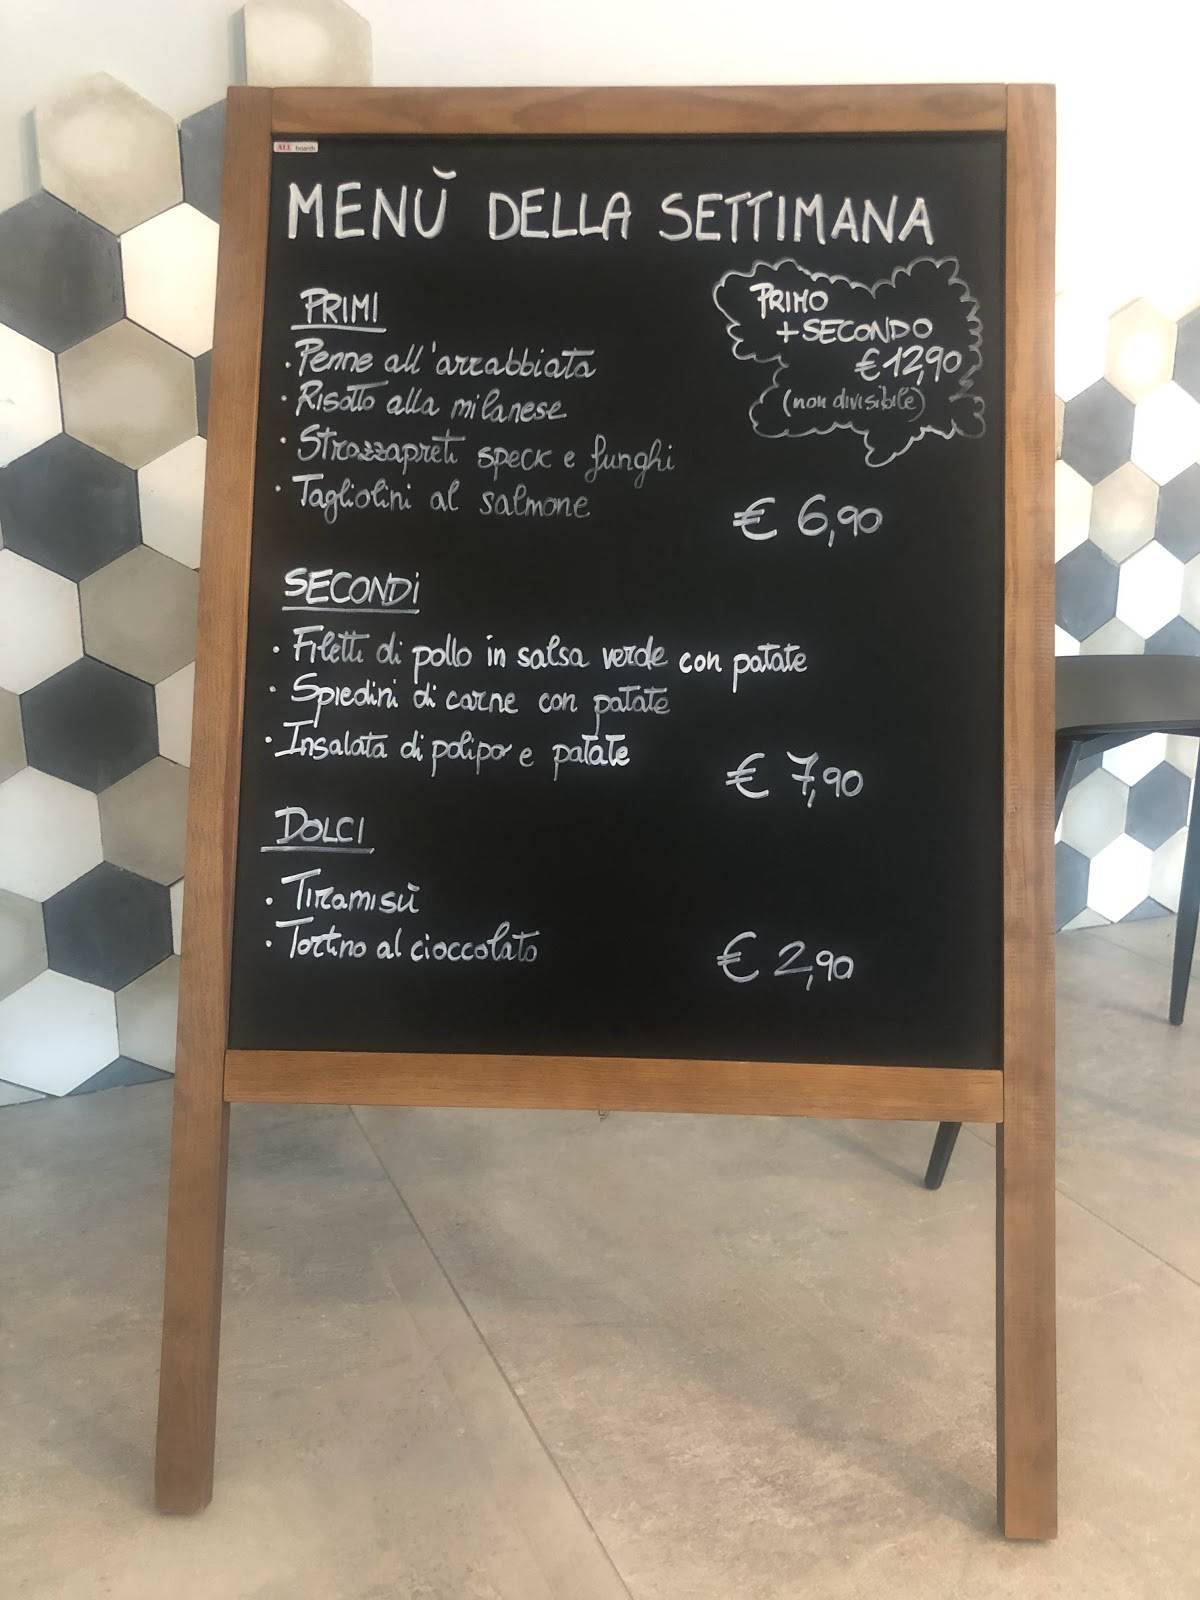 ALL boards
MENÙ DELLA SETTIMANA
PRIMI
· Penne all'arrabbiata
· Risotto alla milanese
· Strozzapreti speck e funghi
· Tagliolini al salmone
€ 6,90
PRIMO
+ SECONDO
€ 12,90
(non divisibile)
SECONDI
· Filetti di pollo in salsa verde con patate
· Spiedini di carne con patate
· Insalata di polipo e patate
€ 7,90
DOLCI
· Tiramisù
· Tortino al cioccolato
€ 2,90